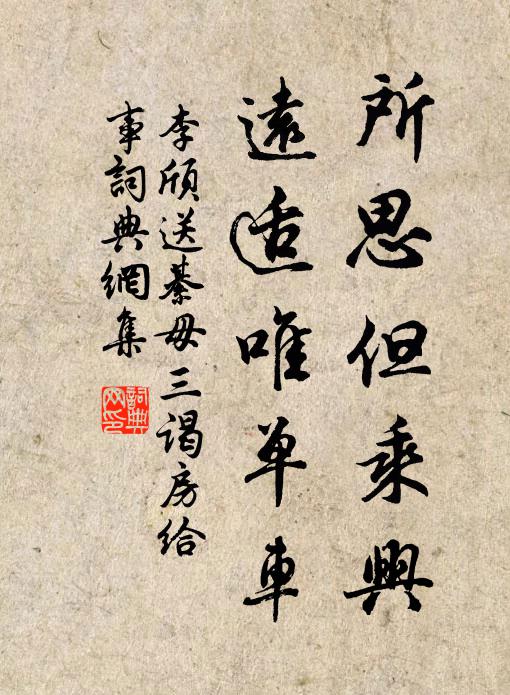 所思但乘興
遠适唯單車
李頎送綦毋三謁房給
事詞典網集
詞典
网印